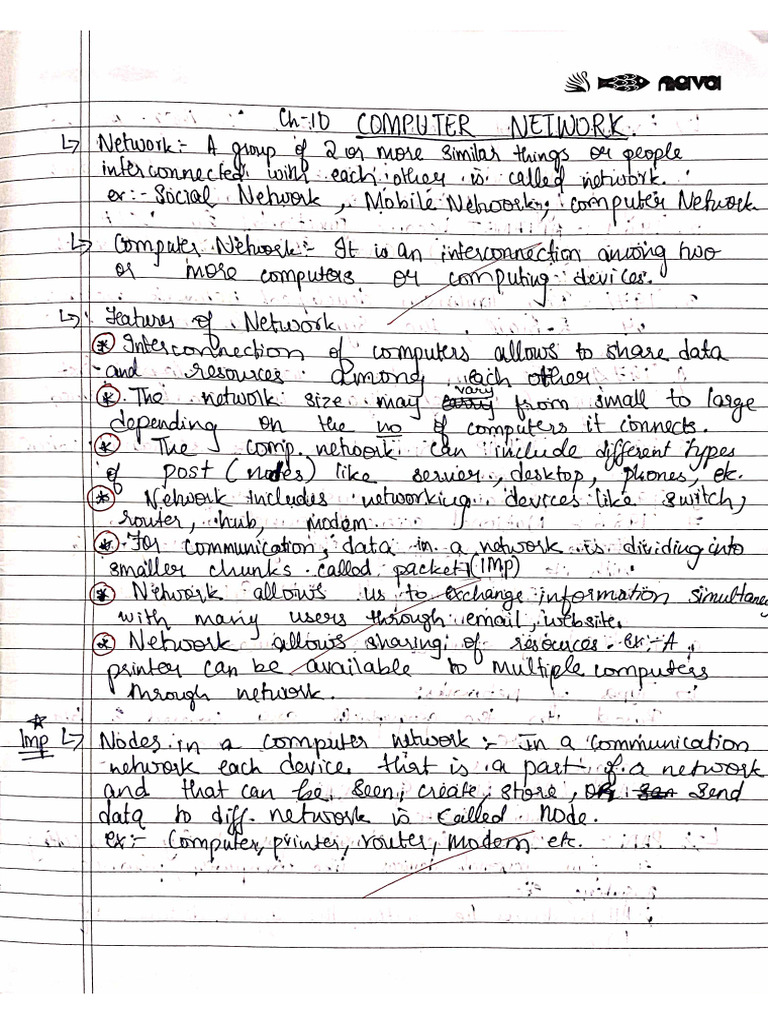 nava
Ch-10 COMPUTER NETWORK.
↳ Network:- A group of 2 or more similar things or people
interconnected with each other is called network.
ex:- Social Network, Mobile Network, computer Network
↳ Computer Network:- It is an interconnection among two
or more computers or computing devices.
↳ Features of Network
* Interconnection of computers allows to share data
and resources among each other
vary
* The network size may from small to large
depending on the no of computers it connects.
* The comp. network can include different types
of post (nodes) like server, desktop, phones, etc.
* Network includes networking devices like switch,
router, hub, modem
* For communication, data in a network is dividing into
smaller chunks called packet (IMP)
* Network allows us to exchange information simultaneo
with many users through email, website.
* Network allows sharing of resources. ex:- A
printer can be available to multiple computers
through network.
☆
Imp ↳ Nodes in a computer network:- In a communication
network each device that is a part of a network
and that can be seen, create, store, or send
data to diff. network is called node.
ex:- Computer, printer, router, modem etc.